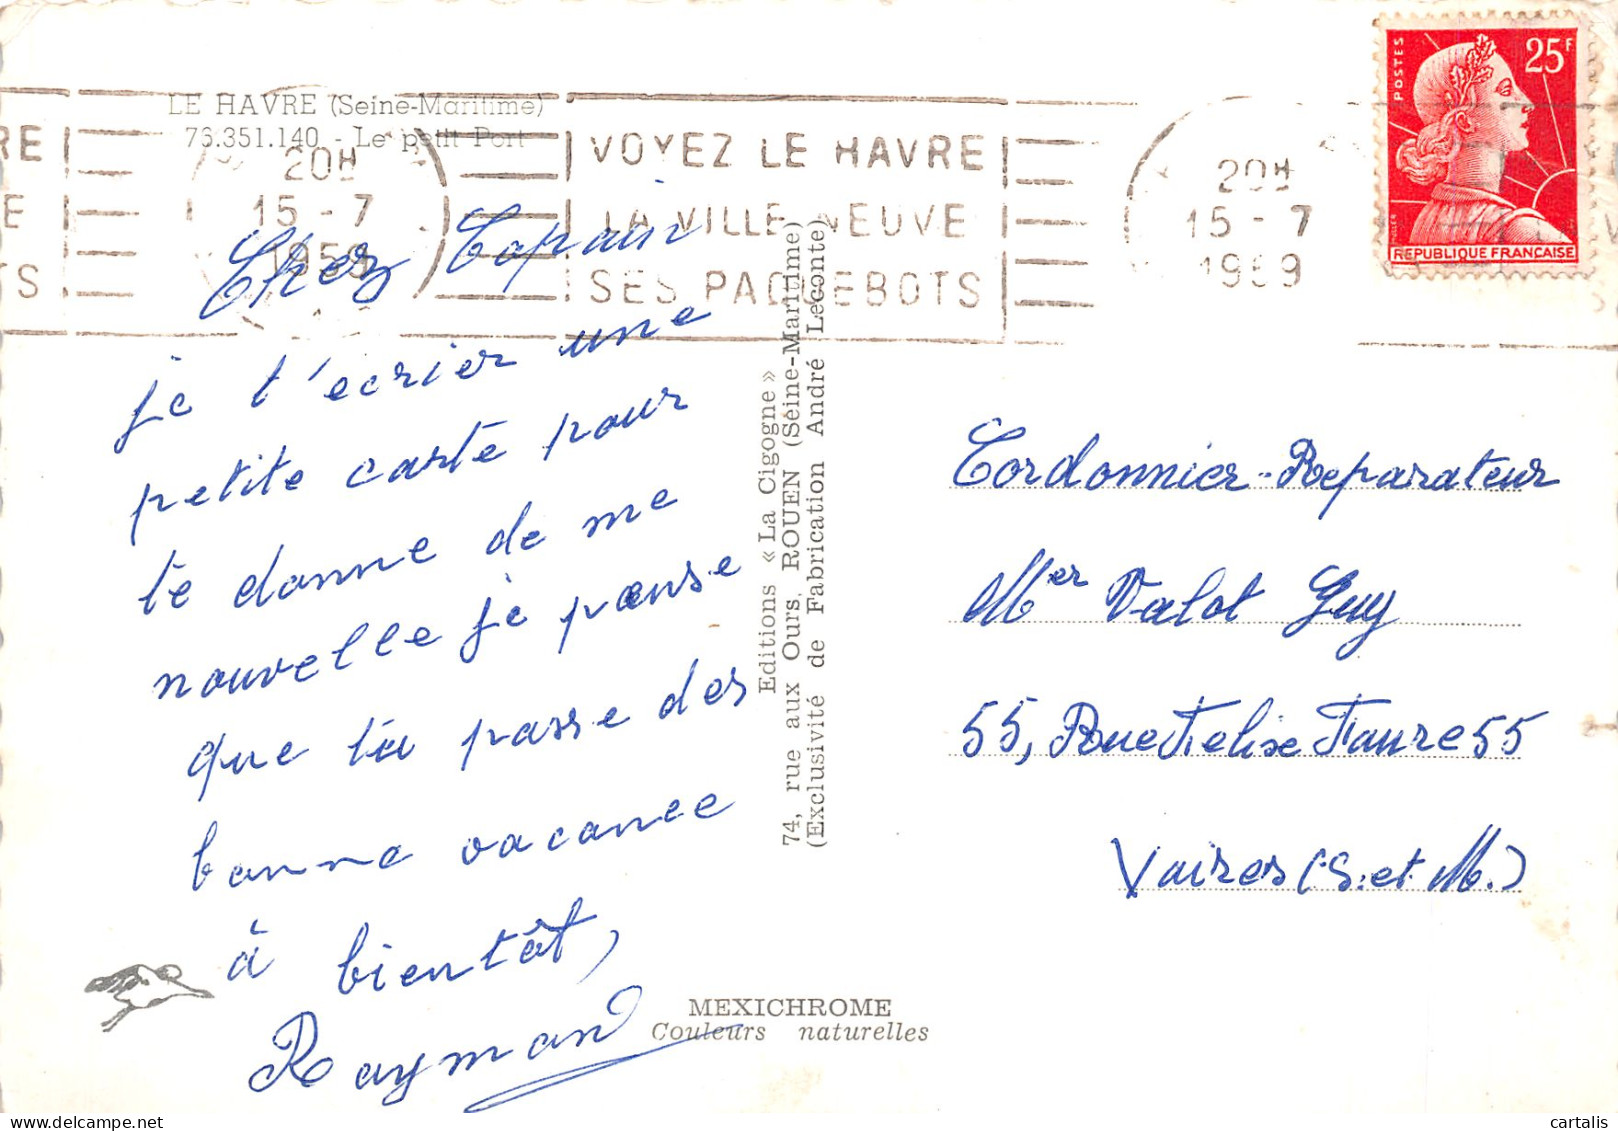 LE HAVRE (Seine-Maritime)
76.351.140 - Le petit Port
RE
E
TS
20H
15 - 7
1959
VOYEZ LE HAVRE
LA VILLE NEUVE
SES PAQUEBOTS
20H
15 - 7
1959
POSTES
25F
REPUBLIQUE FRANÇAISE
Cher Copain
je t'ecrier une
petite carte pour
te donne de me
nouvelle je pænse
que tu passe des
bonne vacance
à bientôt,
Raymond
Editions « La Cigogne »
74, rue aux Ours, ROUEN (Seine-Maritime)
(Exclusivité de Fabrication André Leconte)
Cordonnier-Reparateur
Mer Valot Guy
55, Rue Felix Faure 55
Vaires (S. et M.)
MEXICHROME
Couleurs naturelles
cartalis